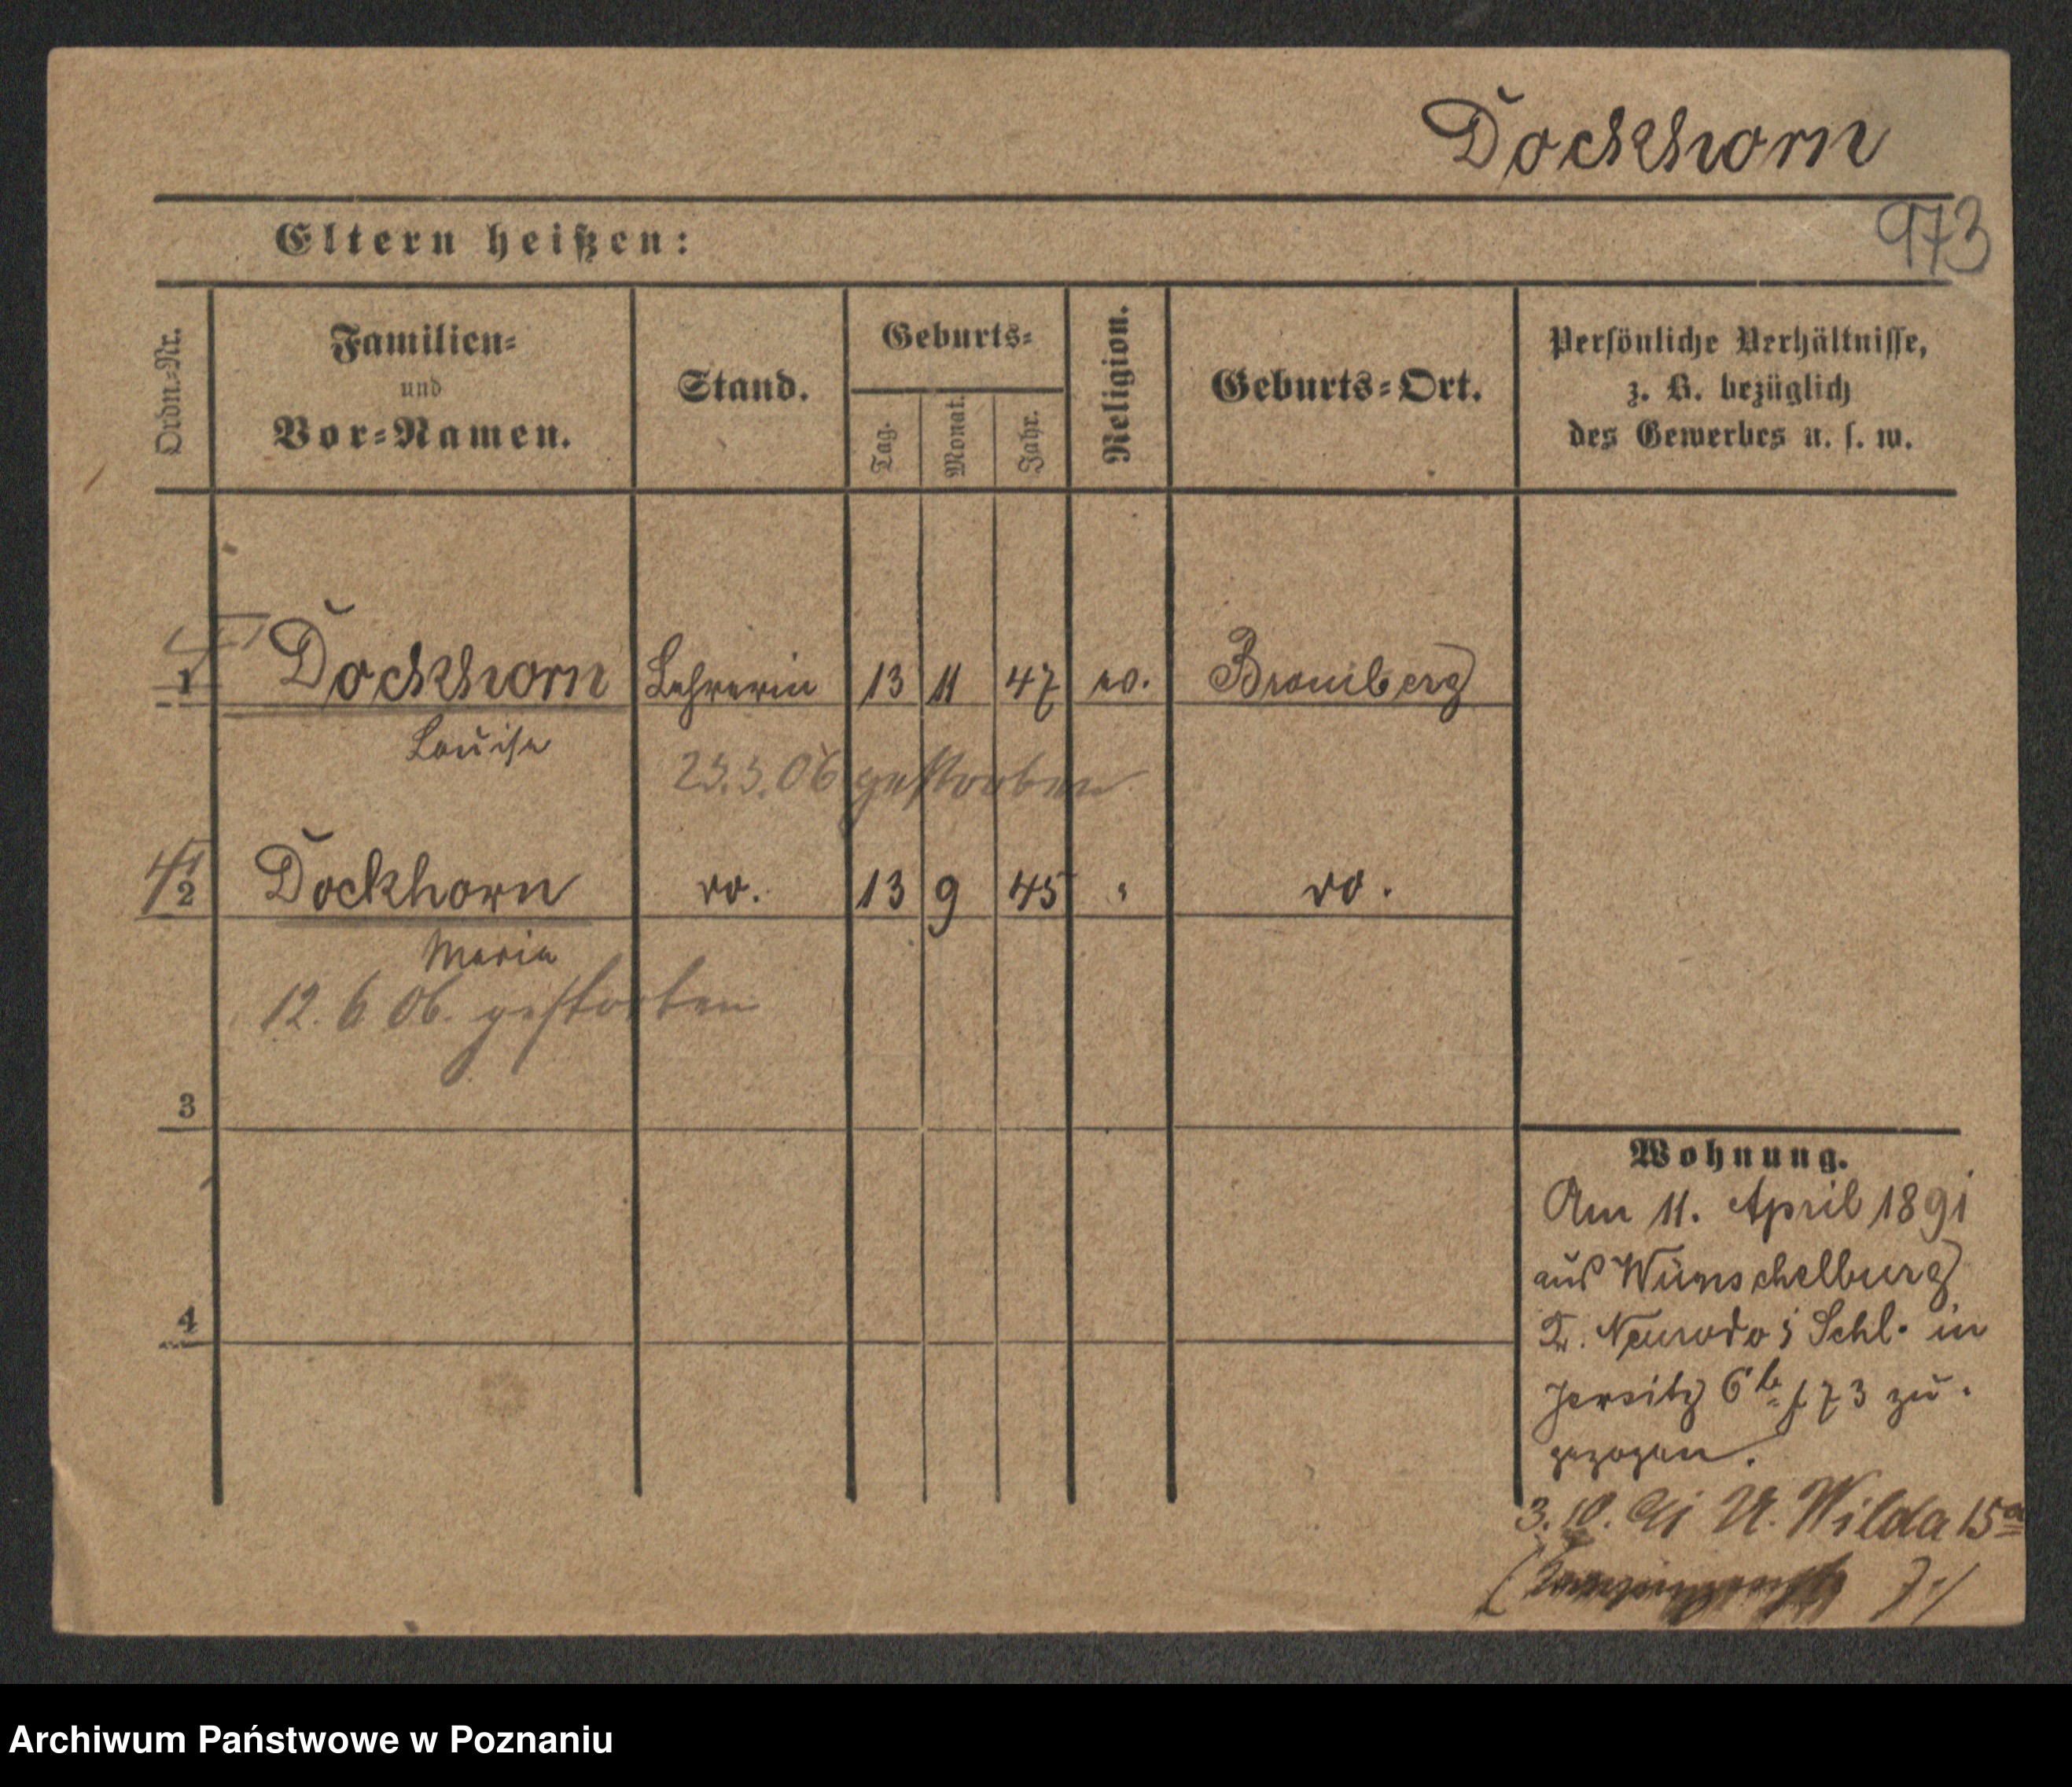 Dockhorn
973
Eltern heißen:
Ordn.-Nr.
Familien-
und
Vor-Namen.
Stand.
Geburts-
Tag.
Monat.
Jahr.
Religion.
Geburts-Ort.
Persönliche Verhältnisse,
z. B. bezüglich
des Gewerbes u. s. w.
1 Dockhorn Lehrerin 13 11 47 ev. Bromberg
Louise
gestorben
2 Dockhorn do. 13 9 45 " do.
Marie
12. 6. 06. gestorben
3
4
Wohnung.
Am 11. April 1891
aus Wünschelburg
Kr. Neurode i Schl. in
Jersitz 6b f. 73 zu.
gezogen.
3. 10. 91 U. Wilda 15a
Archiwum Państwowe w Poznaniu